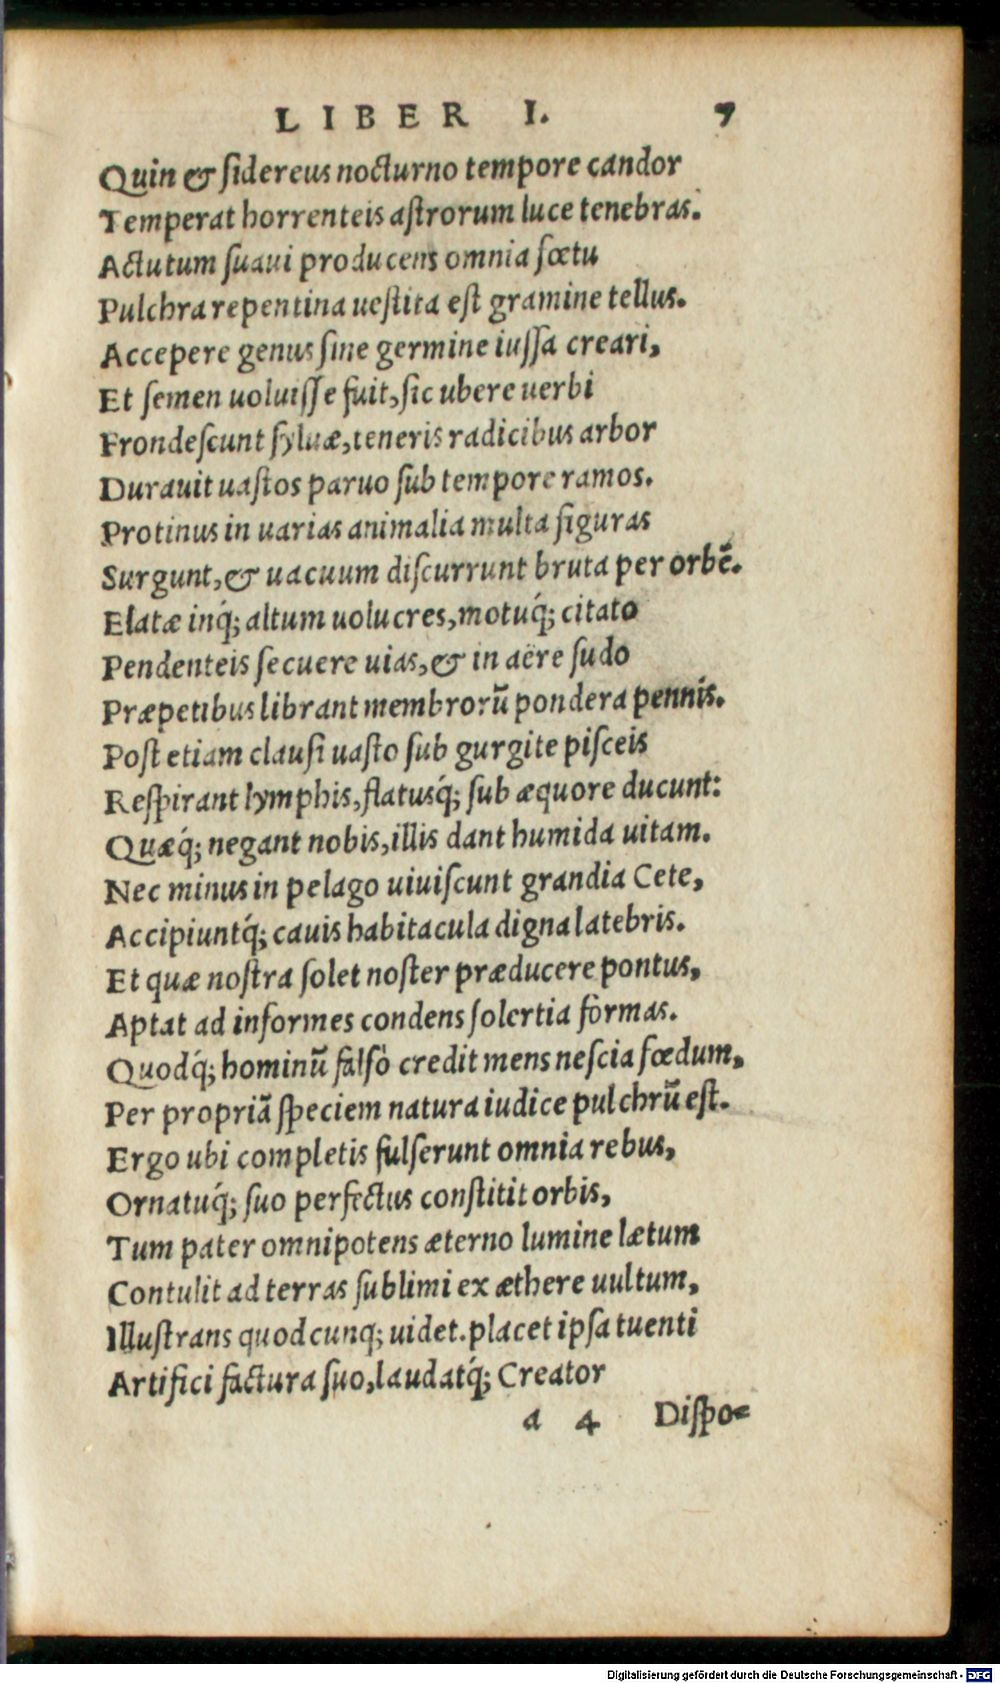 LIBER I. 7
Quin & ſidereus nocturno tempore candor
Temperat horrenteis aſtrorum luce tenebras.
Actutum ſuaui producens omnia fœtu
Pulchra repentina ueſtita eſt gramine tellus.
Accepere genus ſine germine iuſſa creari,
Et ſemen uoluiſſe fuit, ſic ubere uerbi
Frondeſcunt ſyluæ, teneris radicibus arbor
Durauit uaſtos paruo ſub tempore ramos.
Protinus in uarias animalia multa figuras
Surgunt, & uacuum diſcurrunt bruta per orbē.
Elatæ inq́; altum uolucres, motuq́; citato
Pendenteis ſecuere uias, & in aëre ſudo
Præpetibus librant membrorū pondera pennis.
Poſt etiam clauſi uaſto ſub gurgite piſceis
Reſpirant lymphis, flatusq́; ſub æquore ducunt:
Quæq́; negant nobis, illis dant humida uitam.
Nec minus in pelago uiuiſcunt grandia Cete,
Accipiuntq́; cauis habitacula digna latebris.
Et quæ noſtra ſolet noſter præducere pontus,
Aptat ad informes condens ſolertia formas.
Quodq́; hominū falſò credit mens neſcia fœdum,
Per propriā ſpeciem natura iudice pulchrū eſt.
Ergo ubi completis fulſerunt omnia rebus,
Ornatuq́; ſuo perfectus conſtitit orbis,
Tum pater omnipotens æterno lumine lætum
Contulit ad terras ſublimi ex æthere uultum,
Illuſtrans quodcunq; uidet. placet ipſa tuenti
Artifici factura ſuo, laudatq́; Creator
a 4 Diſpo=
Digitalisierung gefördert durch die Deutsche Forschungsgemeinschaft - DFG